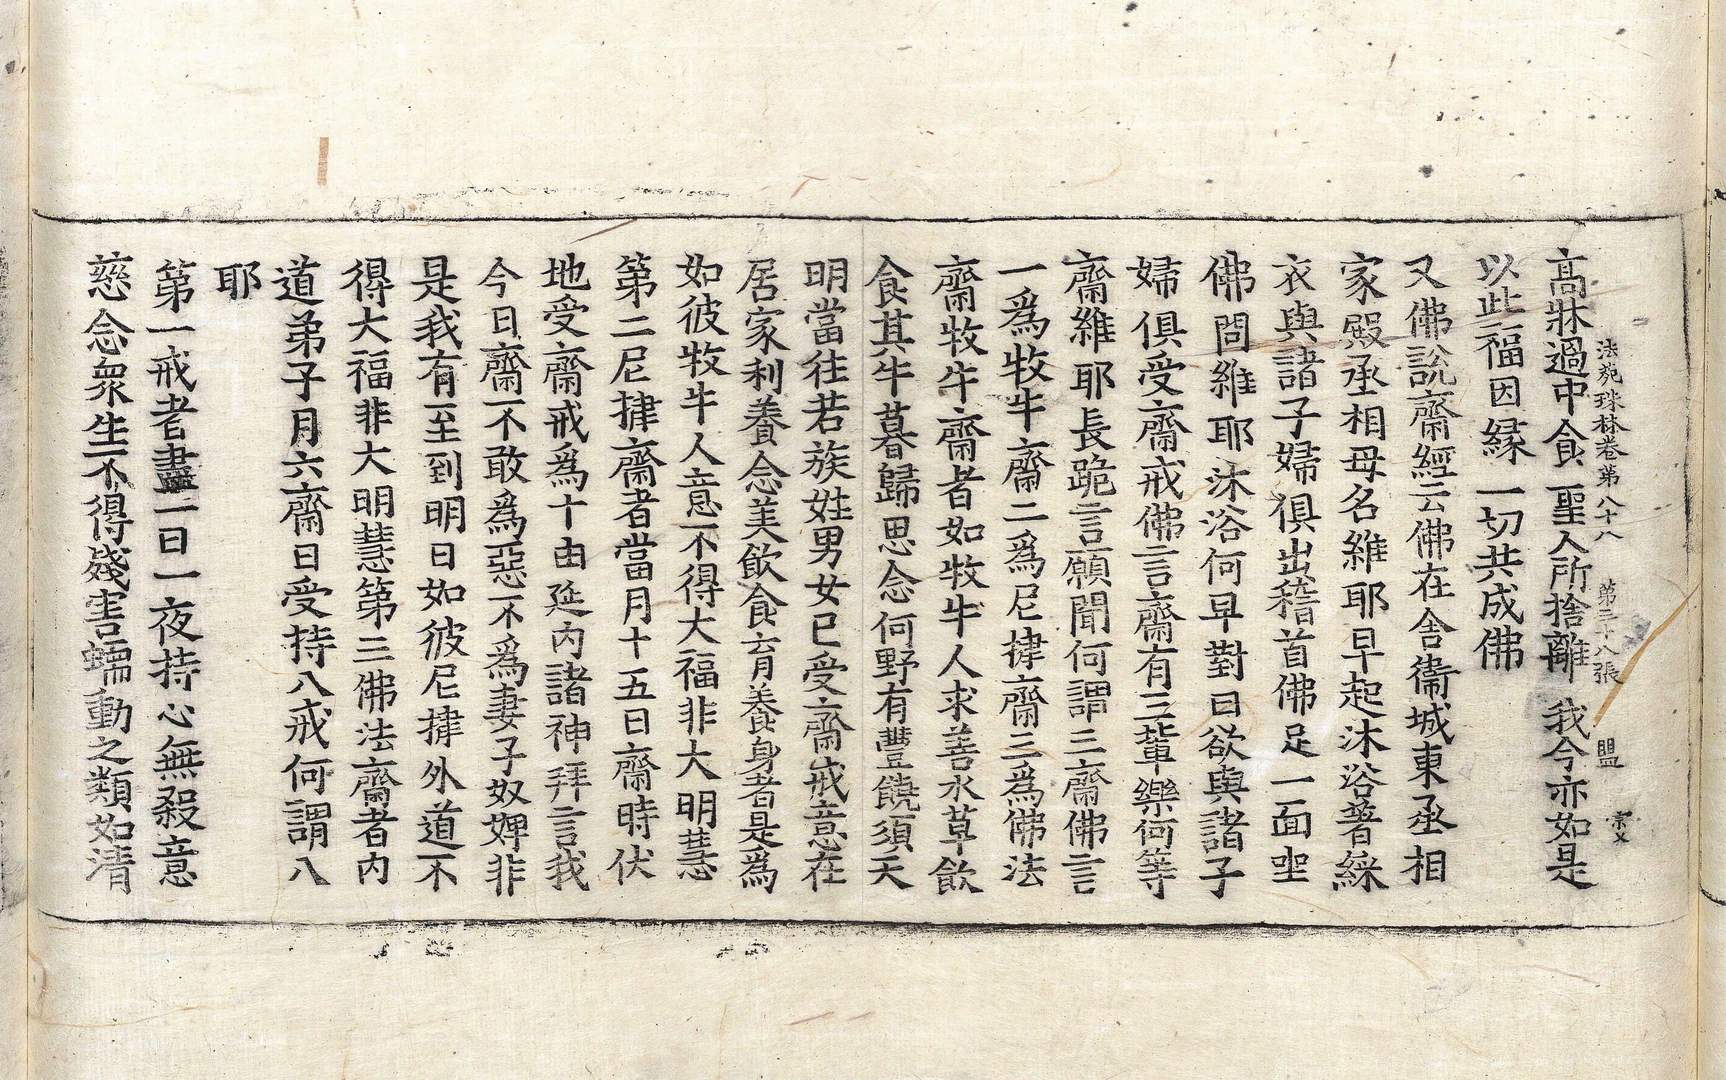 法苑珠林卷第八十八 第三十八張 盟 宗父
高牀過中食 聖人所捨離 我今亦如是
以此福因緣 一切共成佛
又佛說齋經云佛在舍衛城東丞相
家殿丞相母名維耶早起沐浴著綵
衣與諸子婦俱出稽首佛足一面坐
佛問維耶沐浴何早對曰欲與諸子
婦俱受齋戒佛言齋有三輩樂何等
齋維耶長跪言願聞何謂三齋佛言
一爲牧牛齋二爲尼揵齋三爲佛法
齋牧牛齋者如牧牛人求善水草飲
食其牛暮歸思念何野有豐饒須天
明當往若族姓男女已受齋戒意在
居家利養念美飲食育養身者是爲
如彼牧牛人意不得大福非大明慧
第二尼揵齋者當月十五日齋時伏
地受齋戒爲十由延內諸神拜言我
今日齋不敢爲惡不爲妻子奴婢非
是我有至到明日如彼尼揵外道不
得大福非大明慧第三佛法齋者內
道弟子月六齋日受持八戒何謂八
耶
第一戒者盡一日一夜持心無殺意
慈念衆生不得殘害蠕動之類如清